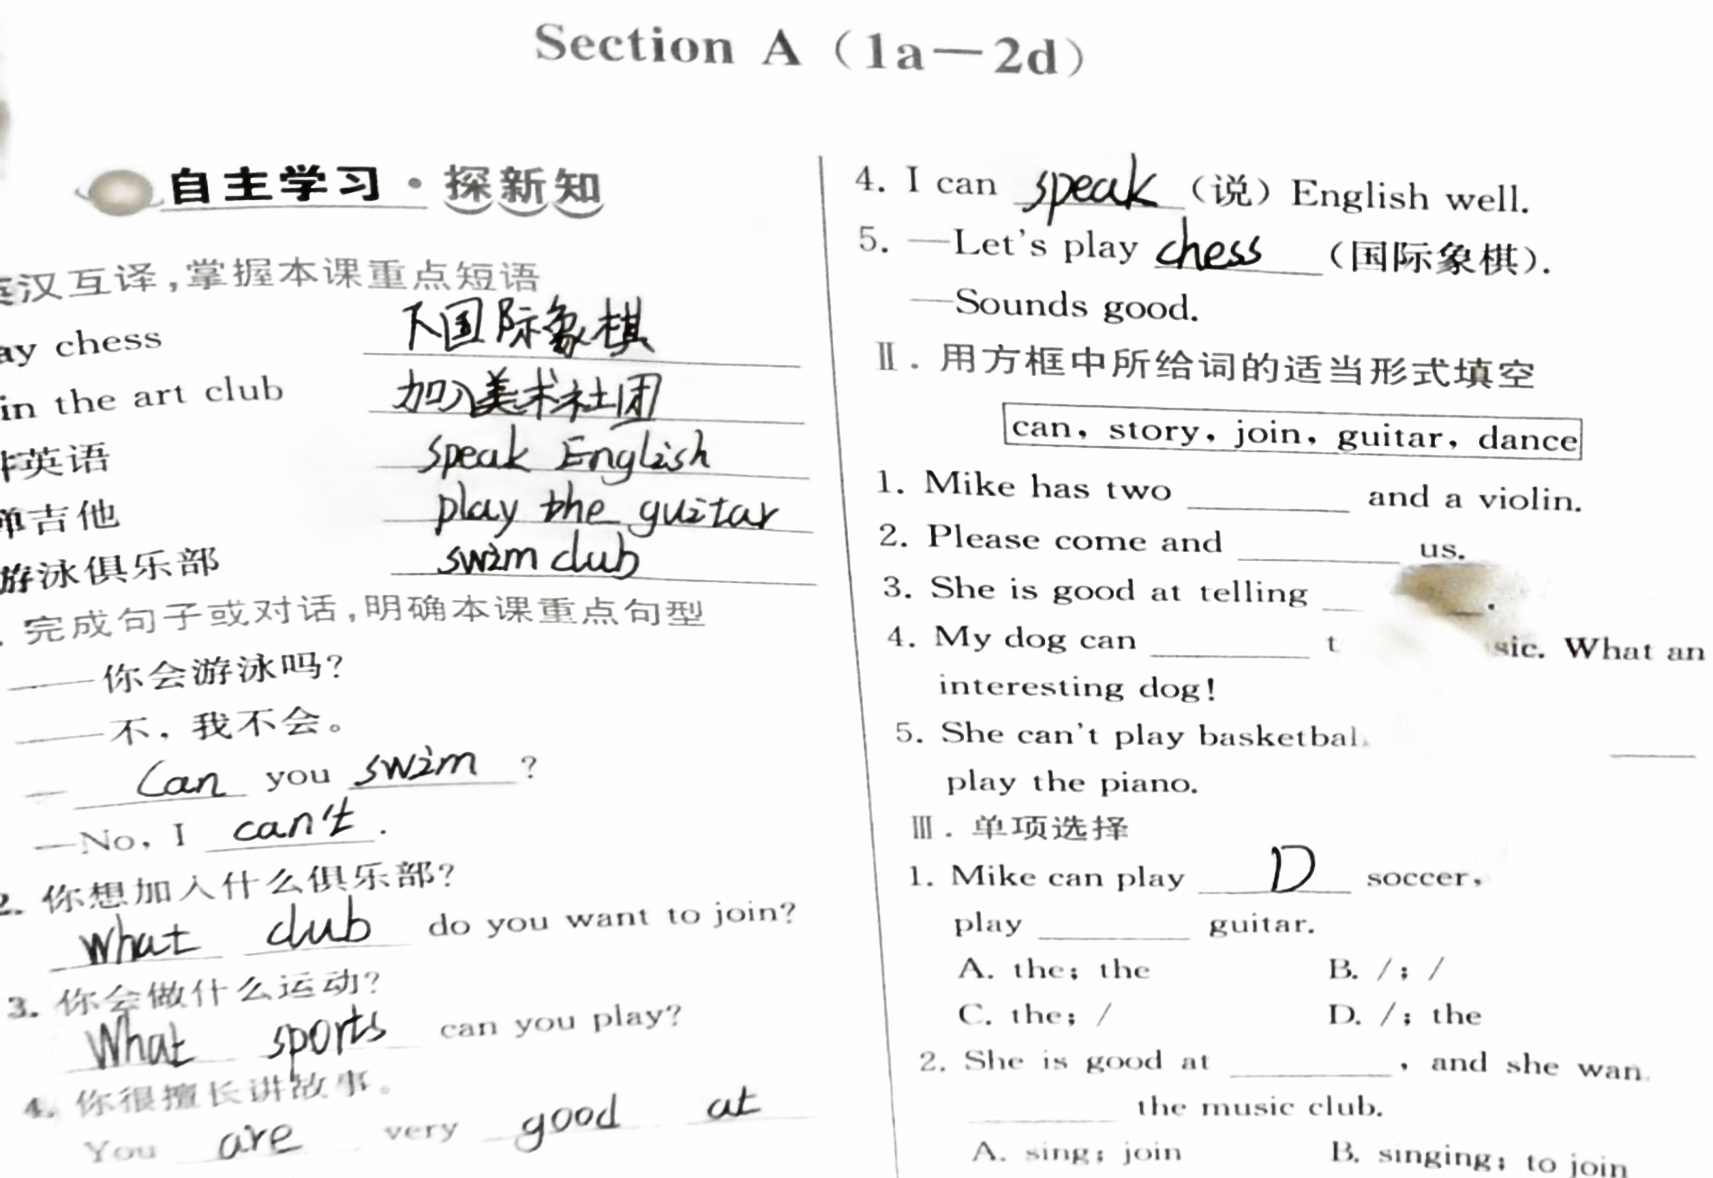 Section A (1a—2d)
自主学习·探新知
汉互译,掌握本课重点短语
ay chess 下国际象棋
in the art club 加入美术社团
英语 speak English
弹吉他 play the guitar
游泳俱乐部 swim club
. 完成句子或对话,明确本课重点句型
——你会游泳吗?
——不，我不会。
— Can you swim ?
—No, I can't .
2. 你想加入什么俱乐部?
What club do you want to join?
3. 你会做什么运动?
What sports can you play?
4. 你很擅长讲故事。
You are very good at
4. I can speak (说) English well.
5. —Let's play chess (国际象棋).
—Sounds good.
Ⅱ. 用方框中所给词的适当形式填空
can, story, join, guitar, dance
1. Mike has two ______ and a violin.
2. Please come and ______ us.
3. She is good at telling ______.
4. My dog can ______ t sic. What an
interesting dog!
5. She can't play basketbal ______
play the piano.
Ⅲ. 单项选择
1. Mike can play D soccer,
play ______ guitar.
A. the; the B. /; /
C. the; / D. /; the
2. She is good at ______, and she wan
______ the music club.
A. sing; join B. singing; to join